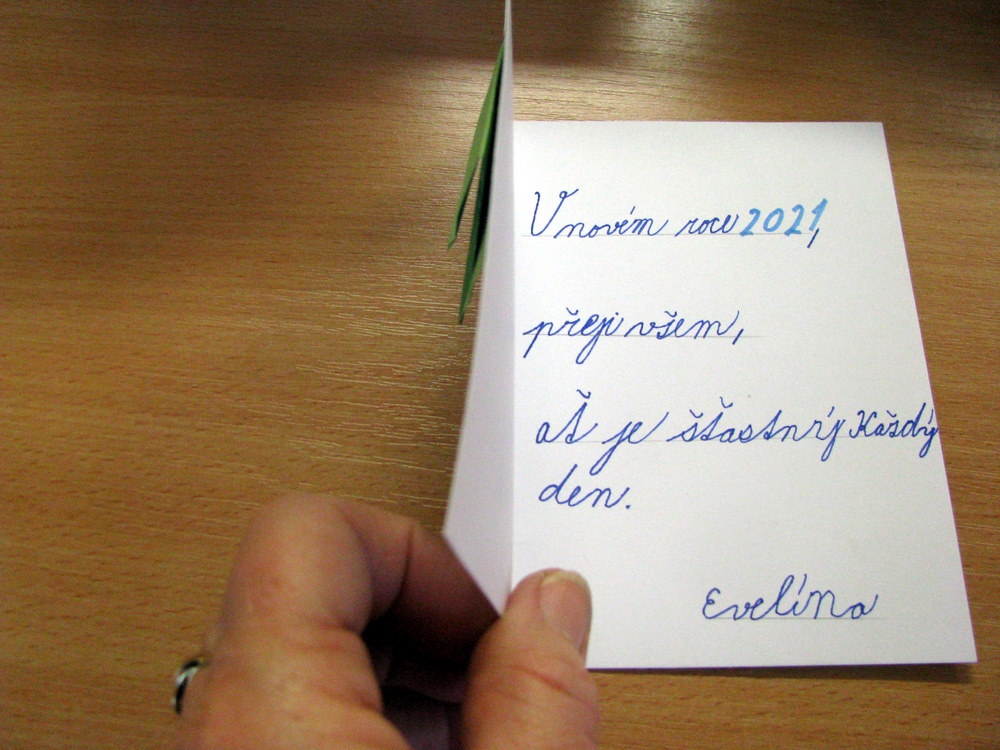 V novém roce 2021,
přeji všem,
ať je šťastný každý
den.
Evelína